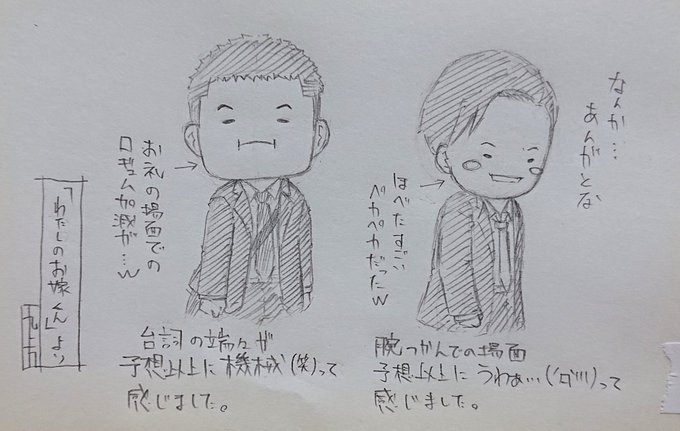 なんか…
あんがとな
ほべたすごい
ペカペカだったw
お礼の場面での
口ギュム加減が…w
「わたしのお嫁くん」より
台詞の端々が
予想以上に機械(笑)って
感じました。
腕つかんでの場面
予想以上にうわぁ…('ロ'''')って
感じました。